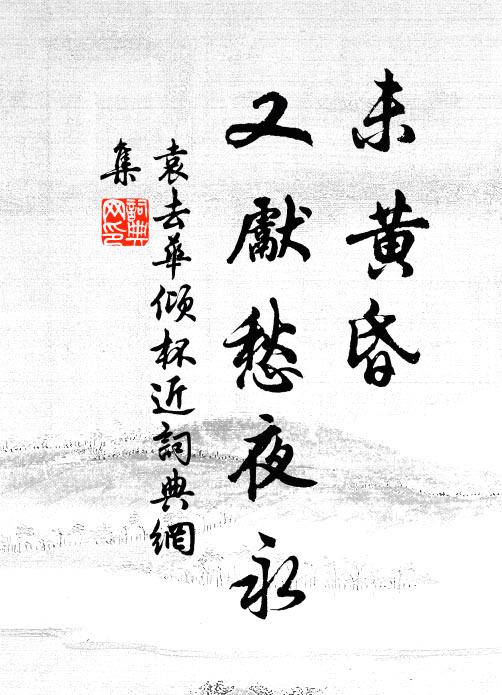 未黃昏
又獻愁夜永
袁去華傾杯近詞典網
集
詞典
网印